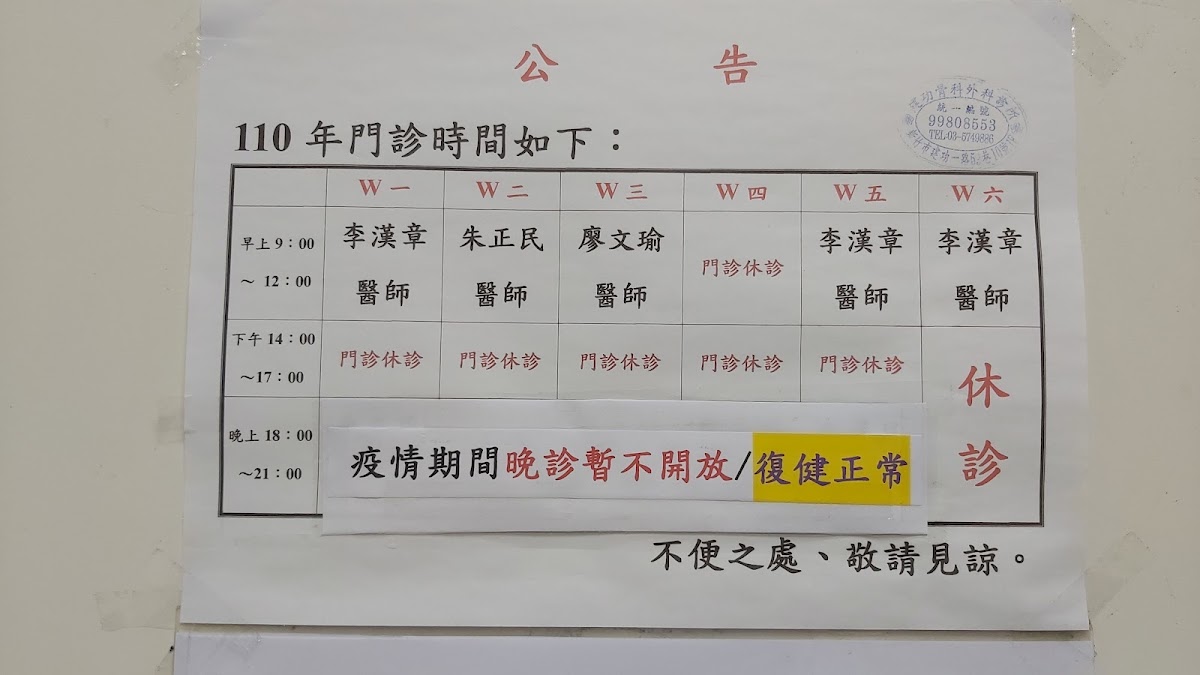 公告
建功骨科外科診所
統一編號
99808553
TEL:03-5749886
110 年門診時間如下：
W 一 W 二 W 三 W 四 W 五 W 六
早上 9：00 ～ 12：00
李漢章醫師 朱正民醫師 廖文瑜醫師 門診休診 李漢章醫師 李漢章醫師
下午 14：00 ～17：00
門診休診 門診休診 門診休診 門診休診 門診休診 休診
晚上 18：00 ～21：00
疫情期間晚診暫不開放/復健正常
不便之處、敬請見諒。